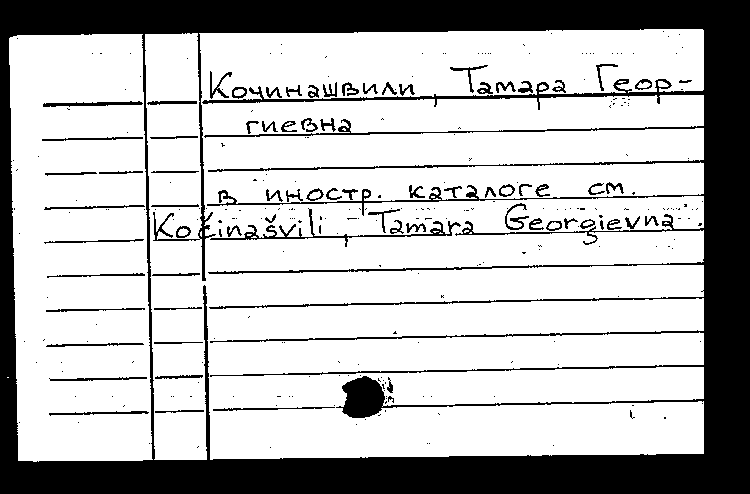 Кочинашвили, Тамара Геор-
гиевна
в иностр. каталоге см.
Kočinašvili, Tamara Georgievna.